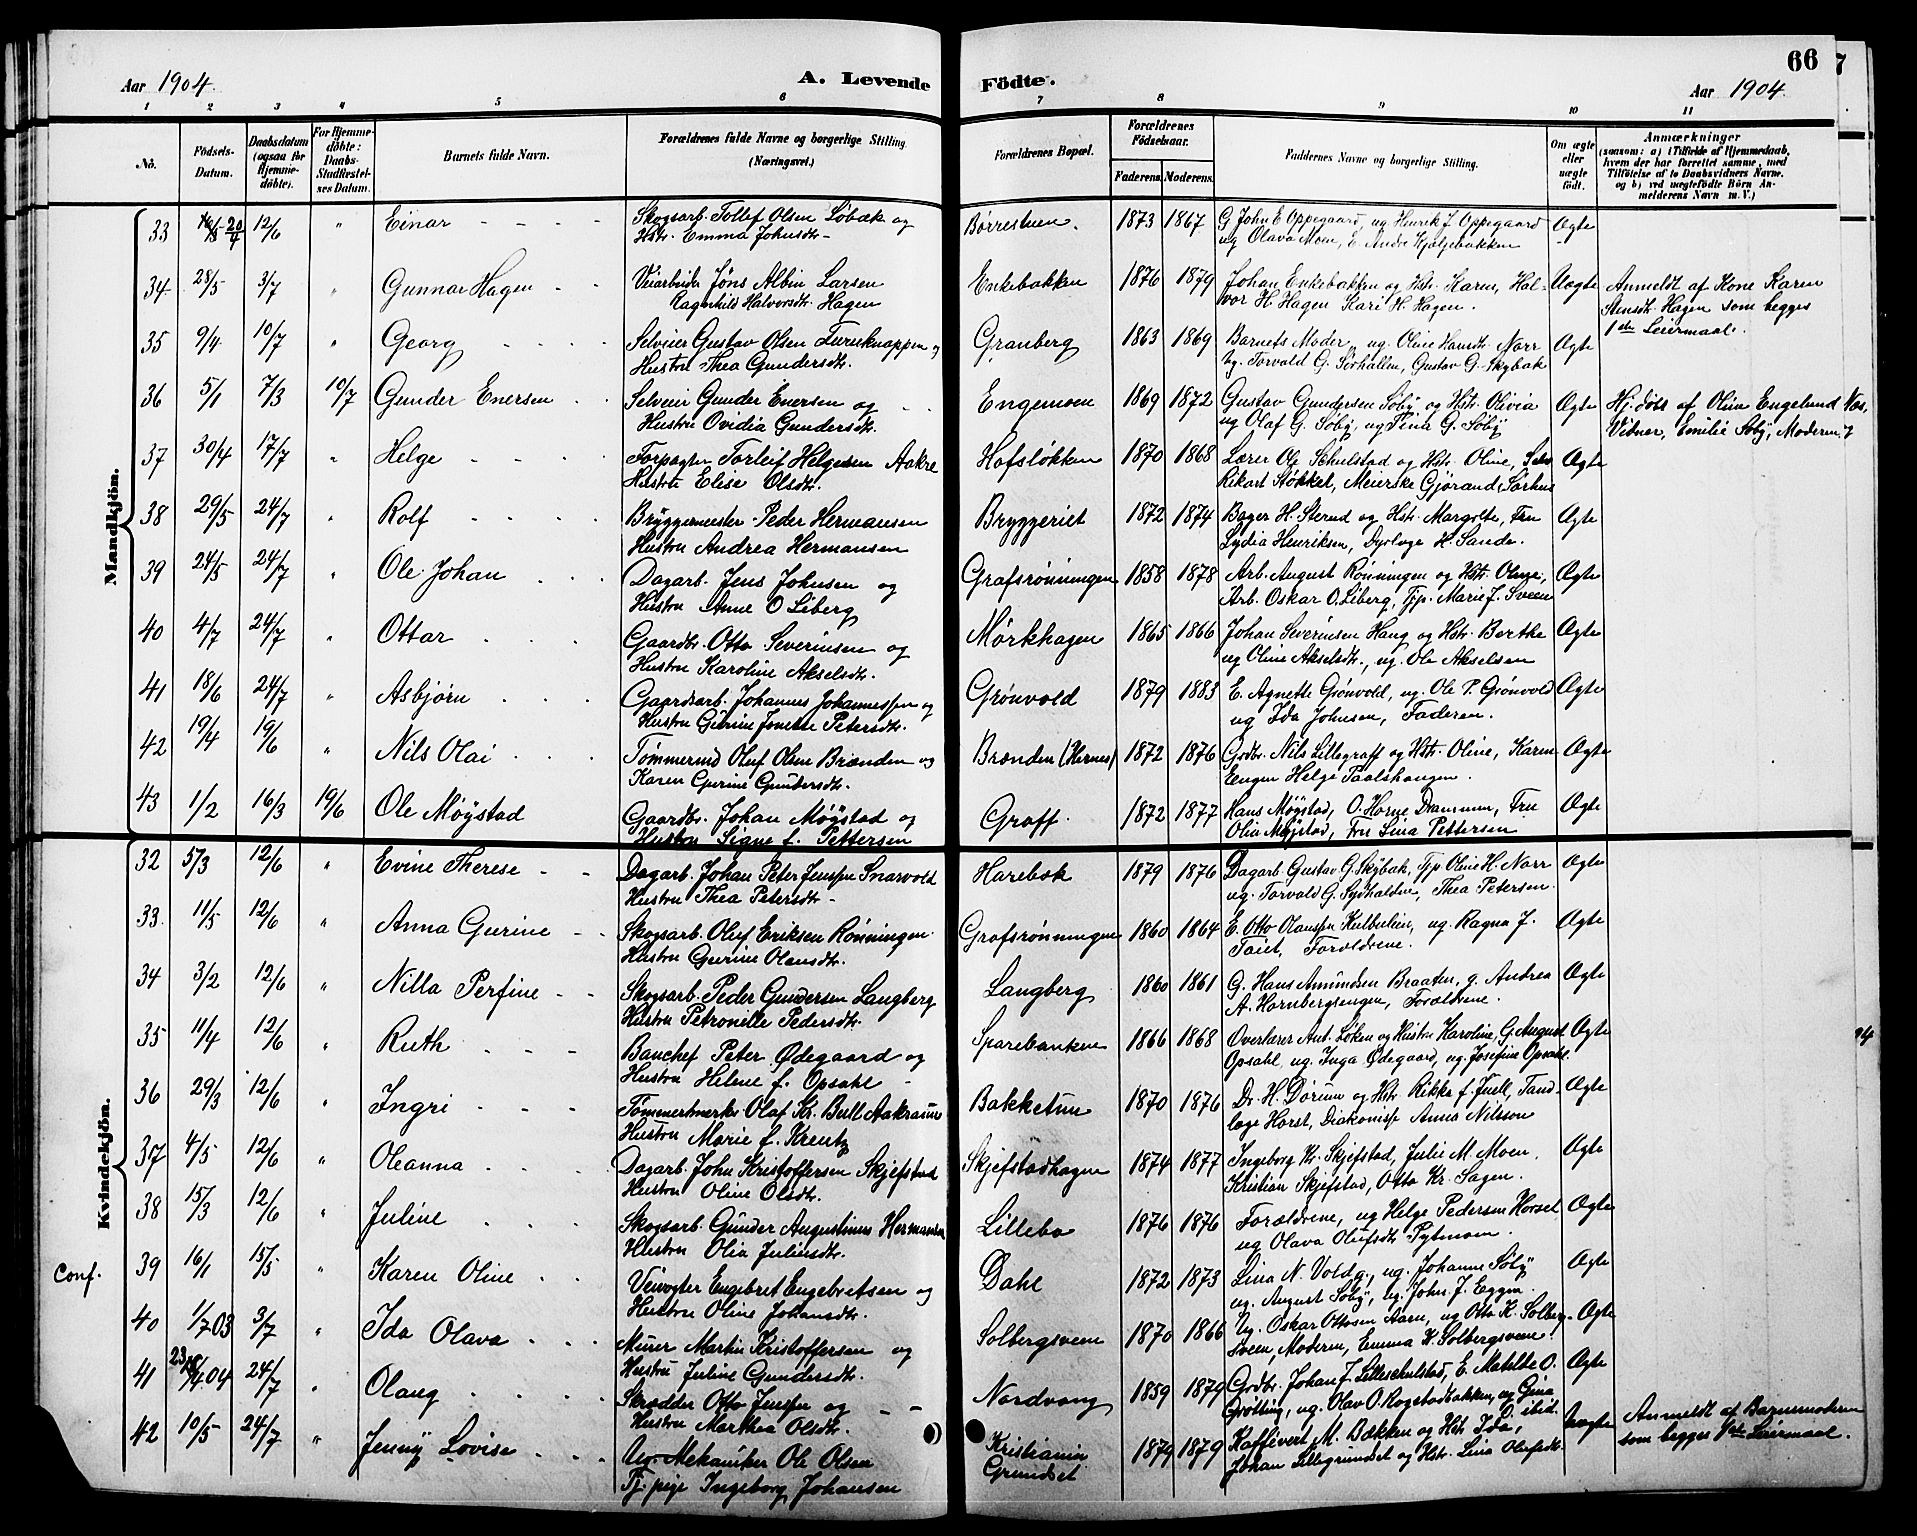 66
Aar 1904. A. Levende Födte. Aar 1904.
1 2 3 4 5 6 7 8 9 10 11
No. Födsels-Datum. Daabsdatum (ogsaa for Hjemmedöbte). For Hjemmedöbte: Daabs-Stadfæstelses Datum. Barnets fulde Navn. Forældrenes fulde Navne og borgerlige Stilling. (Næringsvei.) Forældrenes Bopæl. Forældrenes Födselsaar. Faderens. Moderens. Faddernes Navne og borgerlige Stilling. Om ægte eller uægte født. Anmærkninger (saasom: a) i Tilfælde af Hjemmedaab, hvem der har forrettet samme, med Tilföielse af to Daabsvidners Navne. og b) ved uægtefödte Börn Anmelderens Navn m. V.)
Mandkjön.
33 20/4 12/6 " Einar - - - Skogsarb. Tollef Olsen Løbæk og Børrestuen. 1873 1867 G John E Oppegaard, ug Henrik J. Oppegaard Ægte
Hstr. Emma Johnsdtr- ug Olava Moen, E. Andre Kjølgebakken
34 28/5 3/7 " Gunnar Hagen - - Veiarbeider Jøns Albin Larsen Enkebakken 1876 1879 Johan Enkebakken og Hstr. Karen, Hal- Uægte Anmeldt af Kone Karen
Ragnhild Halvorsdtr. Hagen vor H. Hagen Kari H. Hagen. Stensdtr. Hagen som begges
35 9/4 10/7 " Georg - - - Selveier Gustav Olsen Furuknappen og Granberg 1863 1869 Barnets Moder, ug. Oline Hansdtr. Norr Ægte 1ste Leiermaal.
Hustru Thea Gundersdtr. ug. Torvald G. Sørhallen, Gustav G. Skybak
36 5/1 7/3 10/7 Gunder Enersen - - Selveier Gunder Enersen og - - Engemoen 1869 1872 Gustav Gundersen Søby og Hstr. Olivia Ægte Hj. døbt af Olin Engelund Næs,
Hustru Ovidia Gundersdtr. ug Olaf G. Søby, ug Tina G. Søby Vidner, Emilie Søby, Moderen
37 30/4 17/7 " Helge - - - Forpagter Torleif Helgesen Aakre Hofsløkken 1870 1868 Lærer Ole Schulstad og Hstr. Oline, Ægte
Hustru Elise Olsdtr. Rikart Støkket, Meierske Gjørand Sørhus
38 29/5 24/7 " Rolf - - - Bryggemester Peder Hermansen Bryggeriet 1872 1874 Bager H. Sterud og Hstr. Margithe, Fru Ægte
Hustru Andrea Hermansen Lydia Henriksen, Dyrlæge H. Sande.
39 24/5 24/7 " Ole Johan - - - Dagarb. Jens Johnsen og Grafsrønningen 1858 1878 Arb. August Rønningen og Hstr. Oluze, Ægte
Hustru Anne O Liberg Arb. Oskar O. Liberg, Tjp. Marie J. Sveen
40 4/7 24/7 " Ottar - - - Gaardbr. Otto Severinsen og Mørkhagen 1865 1866 Johan Severinsen Haug og Hstr. Berthe Ægte
Hustru Karoline Akselsdtr. ug Oline Akselsdtr., ug. Ole Akselsen
41 18/6 24/7 " Asbjørn - - - Gaardsarb. Johannes Johannessen og Grønvold 1879 1883 E. Agnette Grønvold, ug. Ole P. Grønvold Ægte
Hustru Gurine Jonette Petersdtr. ug Ida Johnsen, Faderen.
42 19/4 19/6 " Nils Olai - - - Tømmermd Oluf Olsen Brænden og Brænden (Hernes) 1872 1876 Grdbr. Nils Lillegraff og Hstr. Oline, Karen Ægte
Karen Gurine Gundersdtr. Engen Helge Paalshaugen.
43 1/2 16/3 19/6 Ole Møystad Gaardbr. Johan Møystad og Graff. 1872 1877 Hans Møystad, O. Horne Drammen, Fru Ægte
Hustru Signe f. Pettersen Olia Møystad, Fru Lina Pettersen
Kvindekjön.
32 5/3 12/6 " Evine Therese - - Dagarb. Johan Peter Jenssen Snarvold Harebak 1879 1876 Dagarb. Gustav G. Skybak, Tjp Oline H. Norr Ægte
Hustru Thea Petersdtr- ug. Torvald G. Sydhalden, Thea Petersen.
33. 11/5 12/6 " Anna Gurine - - Skogsarb. Oluf Eriksen Rønningen. Grafsrønningen 1860 1864 E. Otto Olaussen Kulbulien, ug. Ragna J. Ægte
Hustru Gurine Olausdtr. Taiet, Forældrene.
34 3/2 12/6 " Nilla Perfine - - Skogsarb. Peder Gundersen Langberg Langberg 1860 1861 G. Hans Amundsen Braaten, g. Andrea Ægte
Hustru Petronille Pedersdtr. A. Hornbergsengen, Forældrene.
35 11/4 12/6 " Ruth - - - Banchef Peter Ødegaard og Sparebanken 1866 1868 Overlærer Ant. Løken og Hustru Karoline, G. August Ægte
Hustru Helene f. Opsahl - Opsahl, ug. Inga Ødegaard, ug. Josefine Opsahl.
36 29/3 12/6 " Ingri - - - Tømmermerker Olaf Kr. Bull Aakraun Bakketun 1870 1876 Dr. H. Dørum og Hstr Rikka f. Juell, Tand- Ægte
Hustru Marie f. Kreutz læge Horst, Diakonisse Anna Nilsson
37 4/5 12/6 " Oleanna - - - Dagarb. John Kristoffersen Skjefstad Skjefstadhagen 1874 1877 Ingeborg Kr. Skjefstad, Julie M. Moen, Ægte
Hustru Oline Olsdtr. Kristian Skjefstad, Otto Kr. Sagen.
38 15/3 12/6 " Juline - - - Skogsarb. Gunder Augustinus Hermansen Lillebo 1876 1876 Forældrene, ug Helge Pedersen Horset Ægte
Hustru Olia Juliusdtr. ug Olava Olufsdtr Pytmoen.
Conf. 39 16/1 15/5 " Karen Oline - - Veivogter Engebret Engebretsen og Dahl 1872 1873 Lina N. Vold g., ug. Johanne Søby Ægte
Hustru Oline Johansdtr. ug. August Søby, ug. John J. Eggen.
40 1/7 03 3/7 " Ida Olava - - - Murer Martin Kristoffersen og Solbergsveen 1870 1866 Ug. Oskar Ottosen Aaen, ug Otto K. Solberg- Ægte
Hustru Juline Gundersdtr. sveen, Moderen, Emma K. Solbergsveen.
41 04 24/7 " Olaug - - - Skrædder Otto Jenssen og - - Nordvang 1859 1879 Grdbr. Johan J. Lilleschulstad, E. Matilde O. Ægte
Hustru Marthea Olsdtr. Grøtting, ug. Olav O. Rogstadbakken, ug Gina O. ibid.
42 10/5 24/7 " Jenny Lovise - - - Ug. Mekaniker Ole Olsen Kristiania 1879 1879 Kaffevert M. Bækken og Hstr. Ida, Uægte Anmeldt af Barnemoderen
Tj. pige Ingeborg Johansen Grundset Johan Lillegrundset og Hstr. Lina Olufsdtr. som begges 1ste Leiermaal.